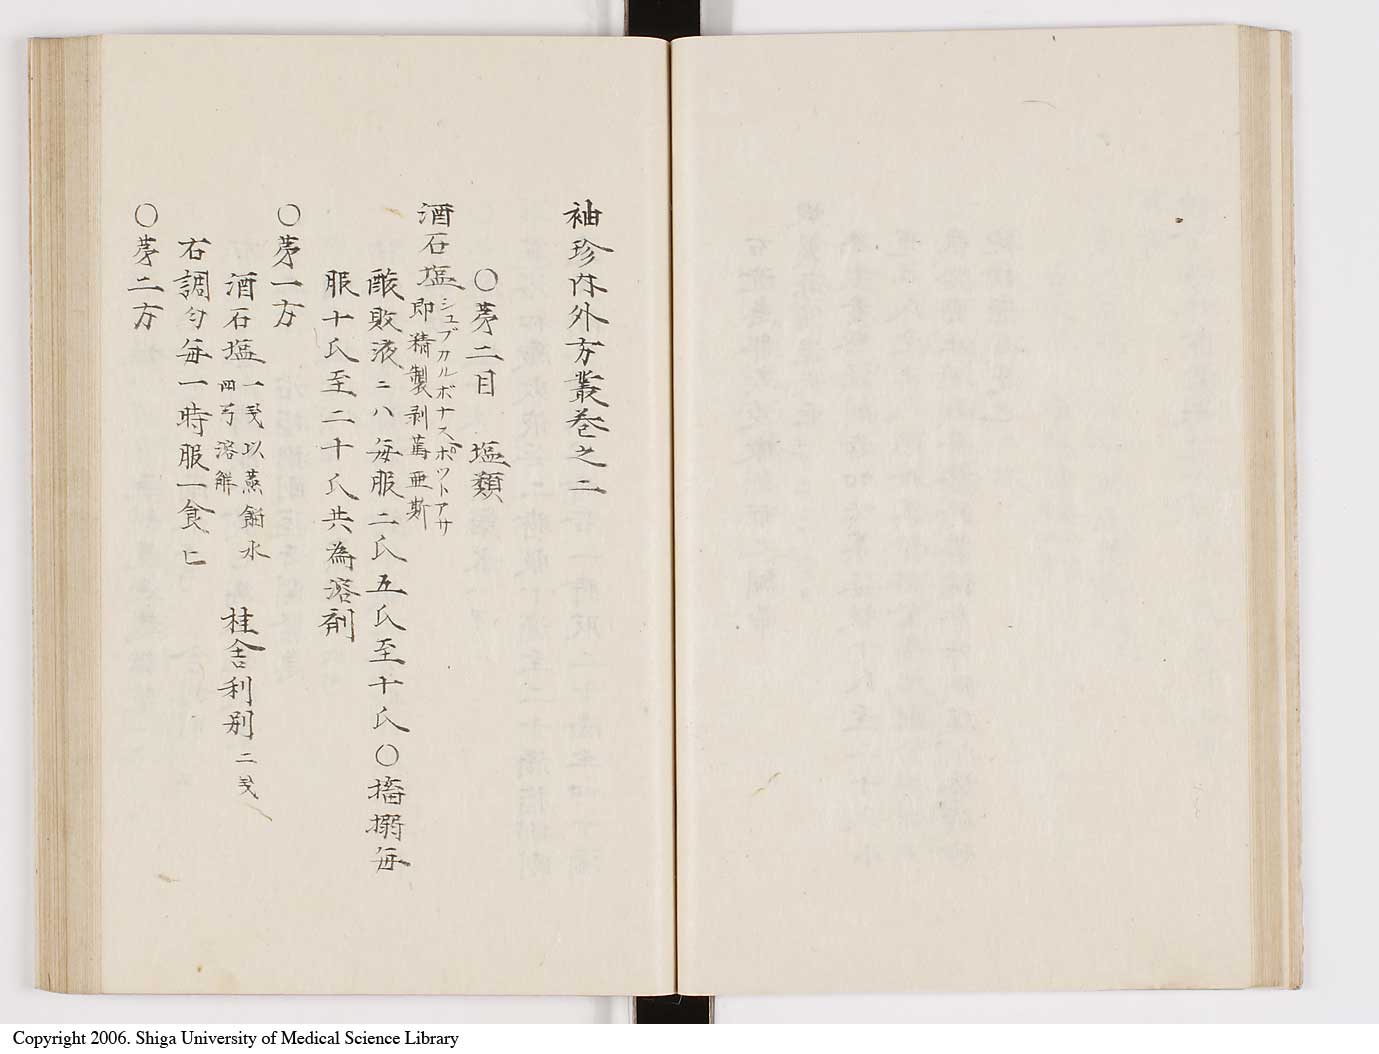 袖珍内外方叢巻之二
〇苐二目 塩類
酒石塩 シュブカルボナスポットアサ 即精製剥篤亜斯
酸敗液ニハ毎服二氏五氏至十氏〇搐搦毎
服十氏至二十氏共為溶剤
〇苐一方
酒石塩 一戔以蒸餾水四弓溶觧 桂舎利別 二戔
右調匀毎一時服一食匕
〇苐二方
Copyright 2006. Shiga University of Medical Science Library